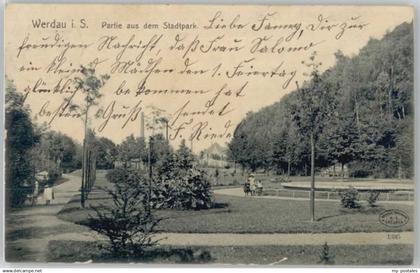 Werdau i. S. Partie aus dem Stadtpark.
Liebe Fanny, Dir zur
freudigen Nachricht, daß Frau Salomo
ein kleines Mädchen am 1. Feiertag
glücklich bekommen hat
besten Gruß sendet
Fr. Riedel
1385